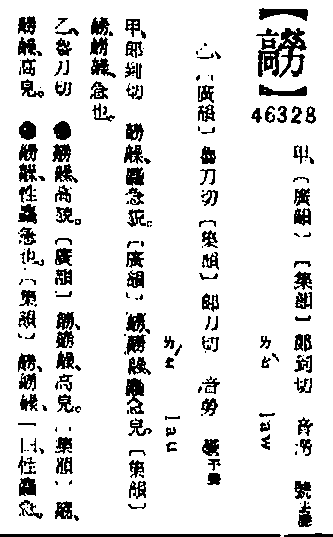 【髝】
46328
甲、〔廣韻〕〔集韻〕郎到切 音澇 號去聲
ㄌㄠˋ law
乙、〔廣韻〕魯刀切〔集韻〕郎刀切 音勞 豪平聲
ㄌㄠˊ lau
甲、郎到切 髝髞、麤急貌。〔廣韻〕髝、髝髞、麤急皃。〔集韻〕
髝、髝髞、急也。
乙、魯刀切 ●髝髞、高貌。〔廣韻〕髝、髝髞、高皃。〔集韻〕髝、
髝髞、高皃。●髝髞、性麤急也。〔集韻〕髝、髝髞、一曰、性麤急。